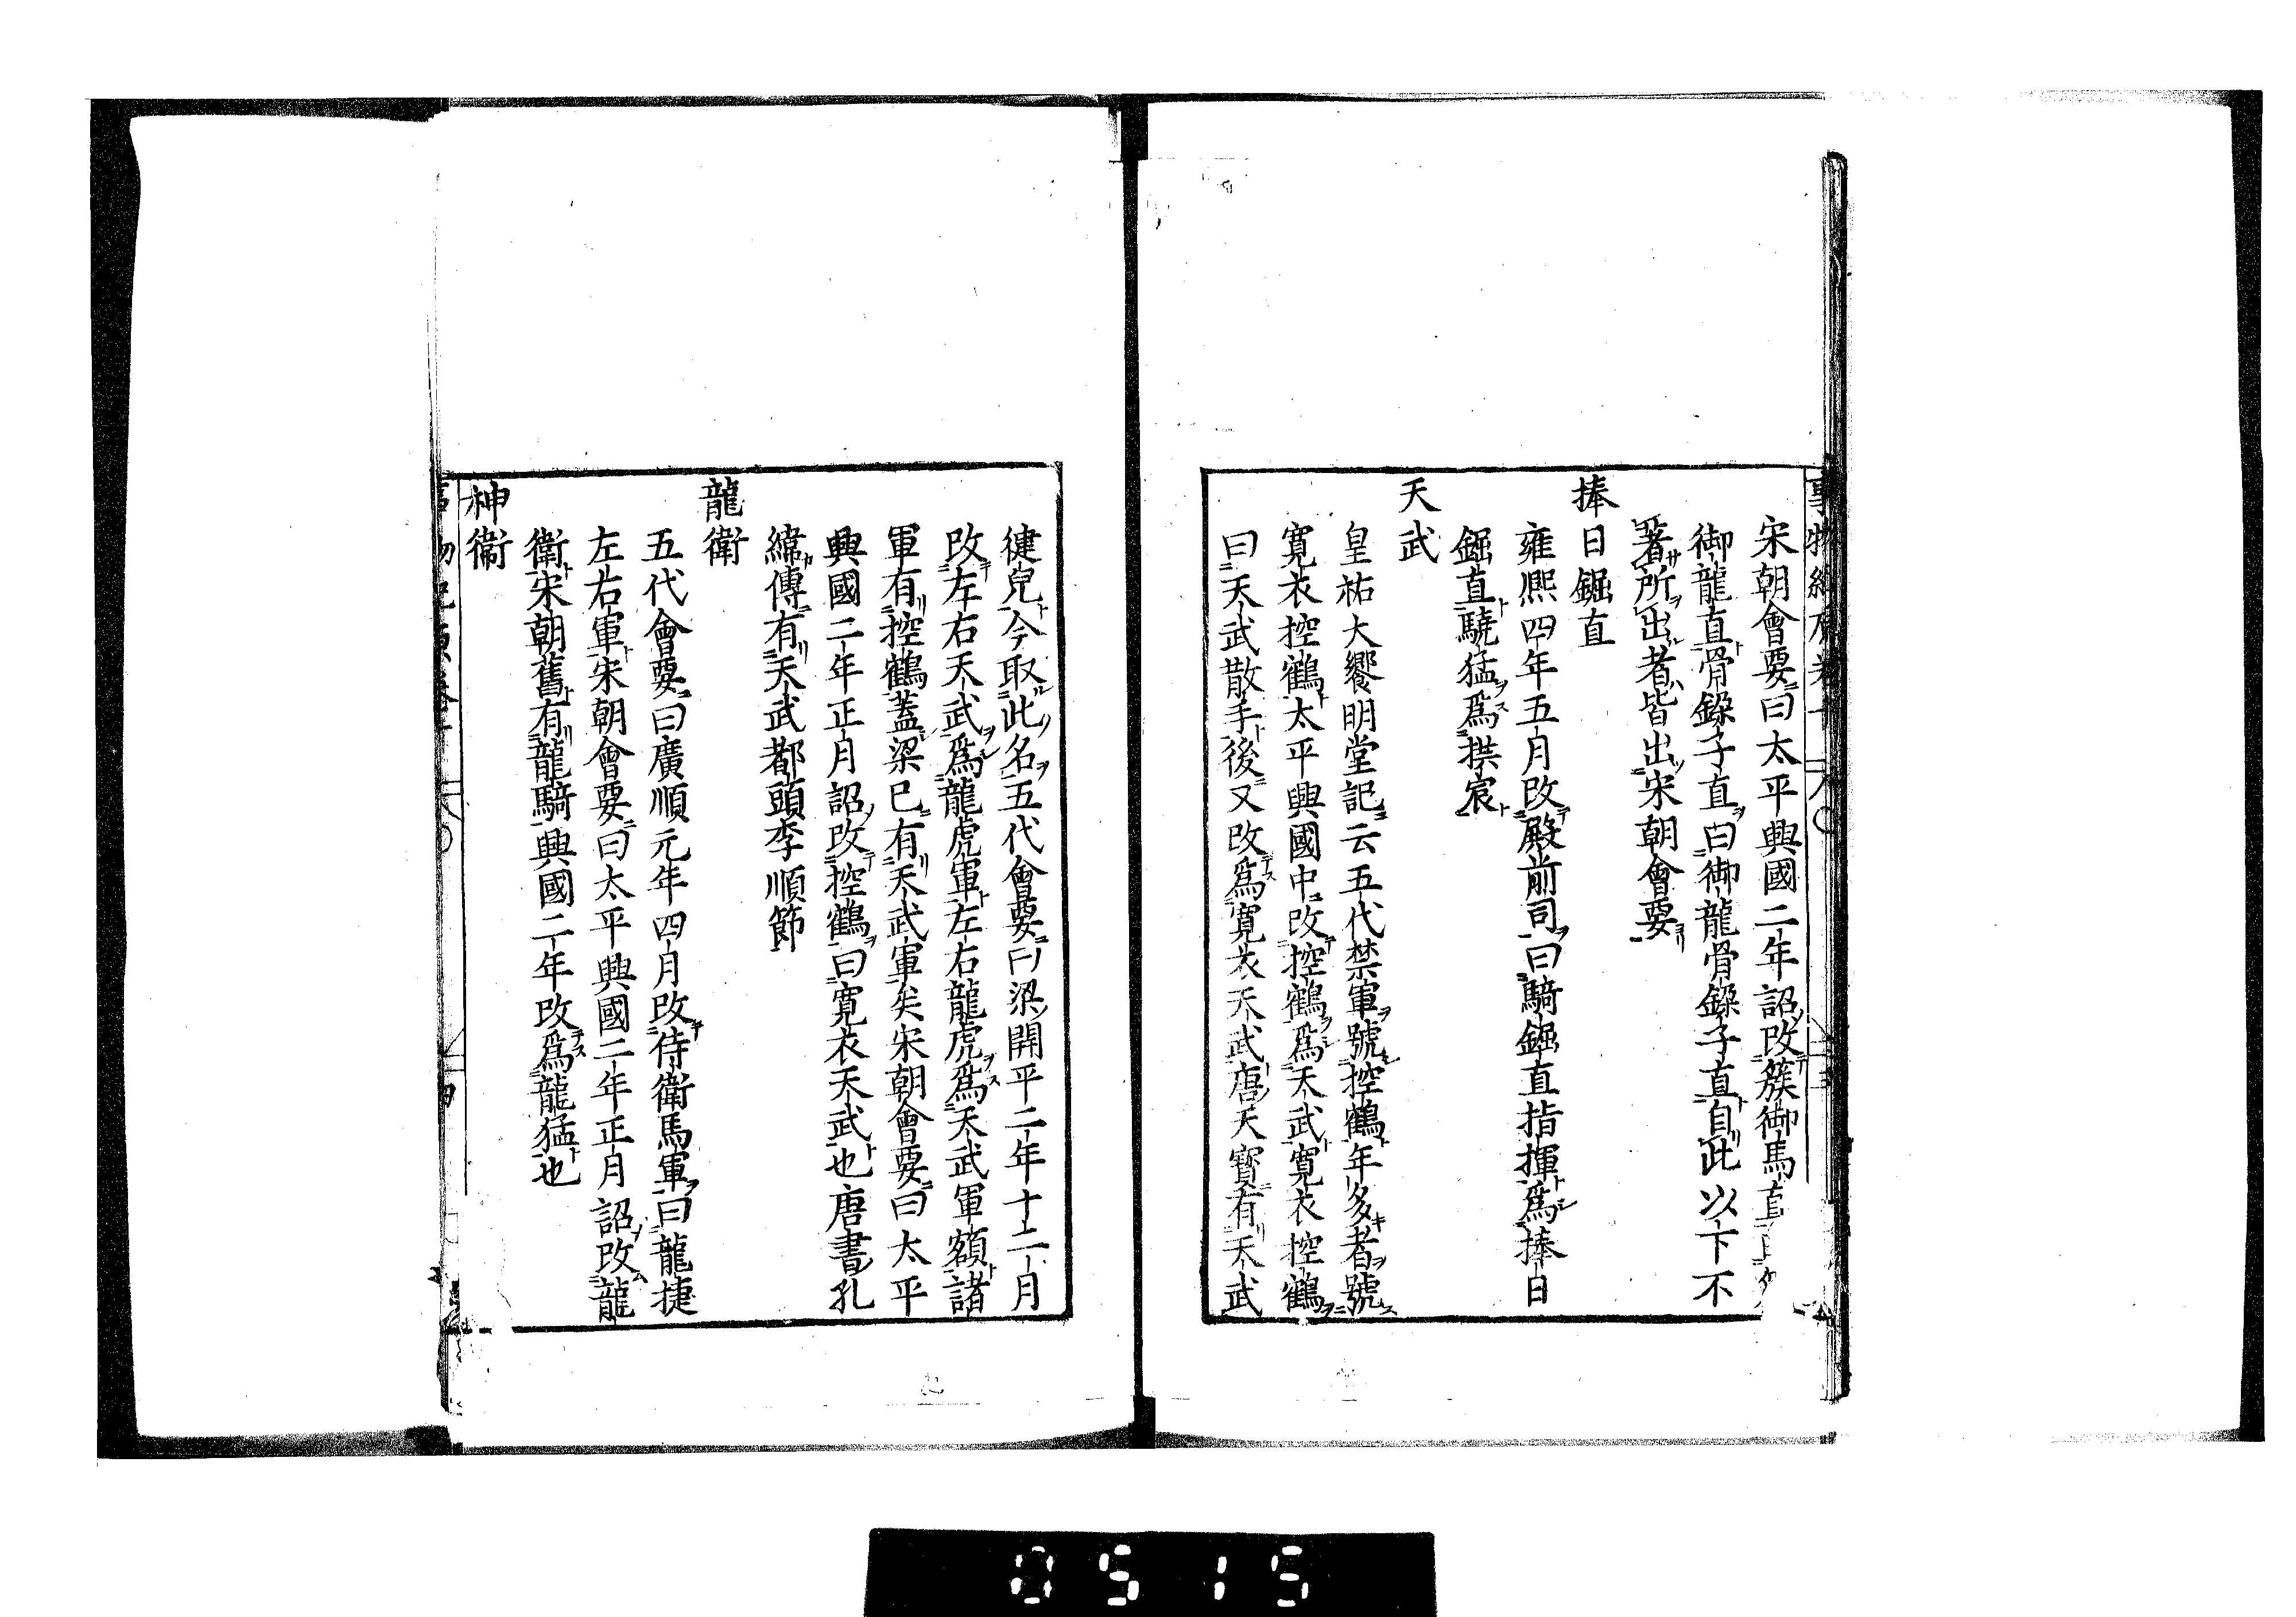 宋朝會要曰太平興國二年詔改簇御馬直
御龍直骨鏁子直曰御龍骨鏁子直自此以下不
著所出者皆出宋朝會要
捧日鋸直
雍熙四年五月改殿前司曰騎鋸直指揮爲捧日
鋸直驍猛爲拱宸
天武
皇祐大饗明堂記云五代禁軍號控鶴年多者號
寬衣控鶴太平興國中改控鶴爲天武寬衣控鶴
曰天武散手後又改爲寬衣天武唐天寳有天武
健兒今取此名五代會要曰梁開平二年十二月
改左右天武爲龍虎軍左右龍虎爲天武軍額諸
軍有控鶴蓋梁已有天武軍矣宋朝會要曰太平
興國二年正月詔改控鶴曰寬衣天武也唐書孔
緯傳有天武都頭李順節
龍衛
五代會要曰廣順元年四月改侍衛馬軍曰龍捷
左右軍宋朝會要曰太平興國二年正月詔改龍
衛宋朝舊有龍騎興國二年改爲龍猛也
神衞
0515